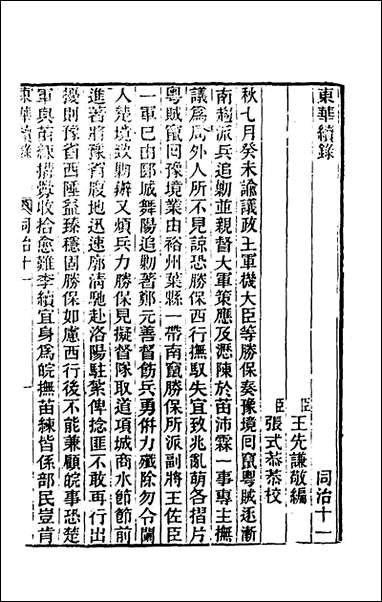 東華續錄
同治十一
臣王先謙敬編
臣張式恭恭校
秋七月癸未諭議政王軍機大臣等勝保奏豫境回竄粵賊逐漸
南趨派兵追勦並親督大軍策應及瀝陳於苗沛霖一事專主撫
議爲局外人所不見諒恐勝保西行撫馭失宜致兆亂萌各摺片
粵賊竄回豫境業由裕州葉縣一帶南竄勝保所派副將王佐臣
一軍已由郾城舞陽追勦著鄭元善督飭兵勇併力殲除勿令闌
入楚境致勦辦又煩兵力勝保見擬督隊取道項城商水節節前
進著將豫省腹地迅速廓清馳赴洛陽駐紮俾捻匪不敢再行出
擾則豫省西陲益臻穩固勝保如慮西行後不能兼顧皖事恐楚
軍與苗練搆釁收拾愈難李續宜身爲皖撫苗練皆係部民豈肯
東華續錄
同治十一
一